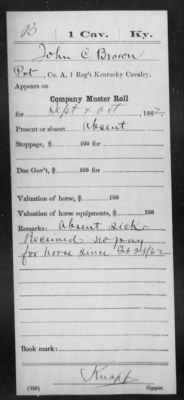 B | 1 Cav. | Ky.
John C Brown
Pvt, Co. A, 1 Reg't Kentucky Cavalry.
Appears on
Company Muster Roll
for Sept & Oct, 1862.
Present or absent Absent
Stoppage, $ 100 for
Due Gov't, $ 100 for
Valuation of horse, $ 100
Valuation of horse equipments, $ 100
Remarks: Absent sick
Received no pay
for horse since
Book mark:
Knapp
(358) Copyist.